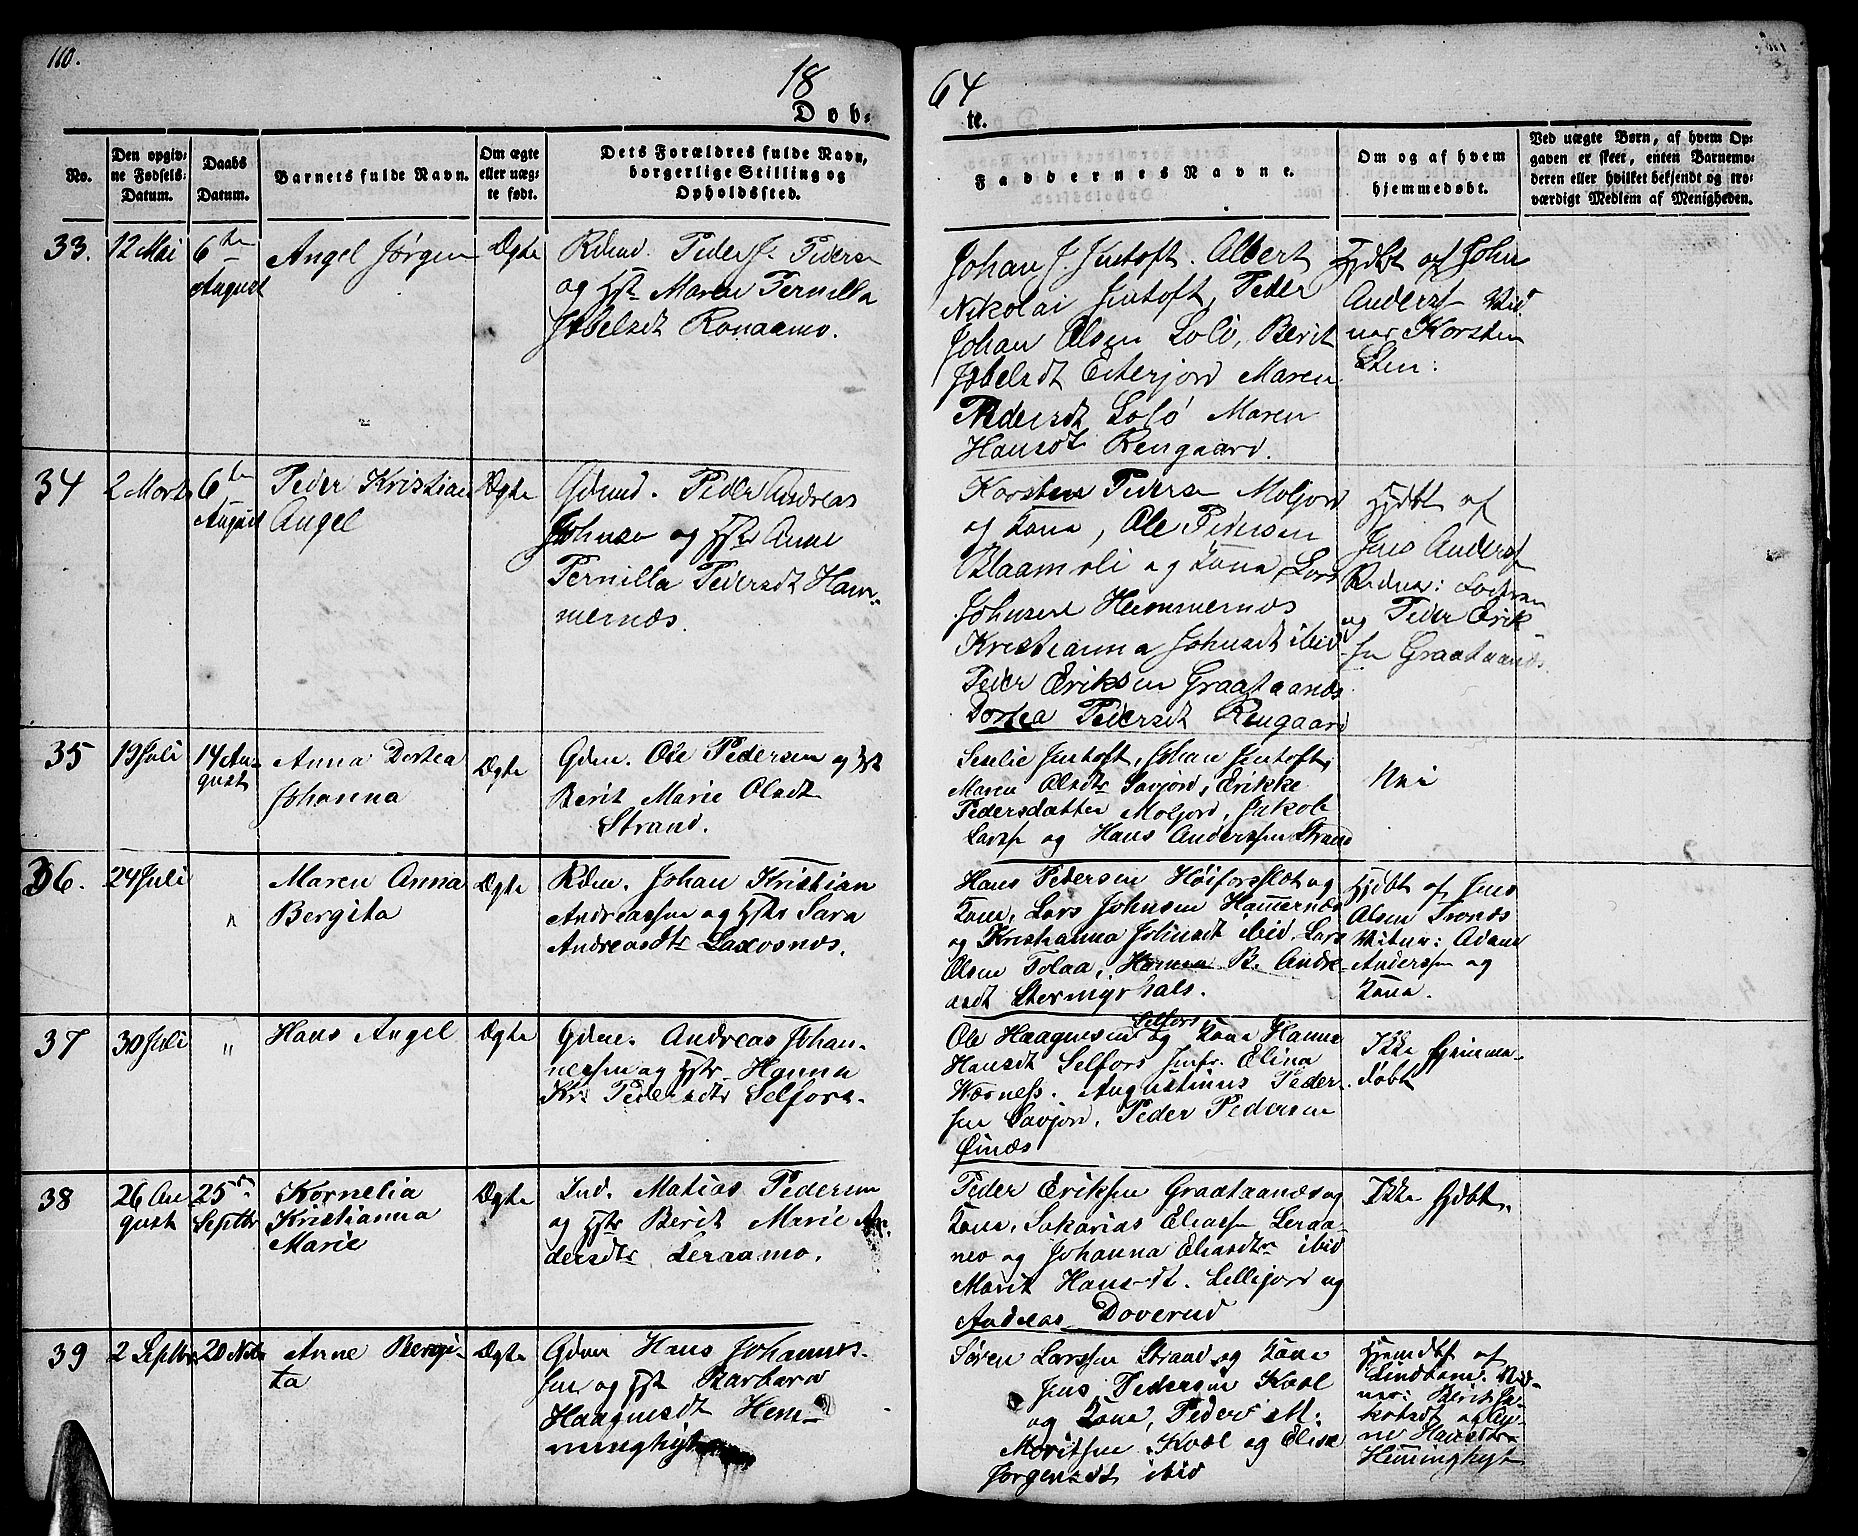 110.
18
64
Døb-
te.
No.
Den opgiv-
ne Fødsels-
Datum.
Daabs
Datum.
Barnets fulde Navn.
Om ægte
eller uæg-
te født.
Dets Forældres fulde Navn,
borgerlige Stilling og
Opholdssted.
Faddernes Navne.
Om og af hvem
hjemmedøbt.
Ved uægte Børn, af hvem Op-
gaven er skeet, enten Barnemo-
deren eller hvilket bekjendt og tro-
værdigt Medlem af Menigheden.
33.
12 Mai
6te
August
Angel Jørgen
Ægte
Rdmd. Peder J. Peders
og Hst Maren Pernilla
Jobelsdt Ranaamo.
Johan J. Jentoft. Albert
Nikolai Jentoft, Peder
Johan Olsen Solö, Berit
Jobelsdt Eiterjord Maren
Pedersdt Solö Maren
Hansdt Rengaard.
Hjdbt af John
Anders
Korsten
34
2 Marts
6te
August
Peder Kristian
Angel
Ægte
Gdmd. Peder Andreas
Johnsen og Hstr Anne
Pernilla Pedersdt Ham-
mernæs.
Karsten Peders Moljord
og Kona, Ole Pedersen
Blaamoli og Kona, Lars
Johnsen Hammernæs
Kristianna Johnsdt ibid
Peder Eriksen Graataanæs
Dortea Pedersdt Rengaard
Hjdbt af
Jens Anders
og Peder Erik-
sen Graataanæs
35
19 Juli
14 Au-
gust
Anna Dortea
Johanna
Ægte
Gdm. Ole Pedersen og Hst
Berit Marie Olsdt
Strand.
Jentoft, Johan Jentoft,
Maren Olsdtr Savjord, Erikke
Pedersdatter Moljord, Jakob
Larss og Hans Anderssen Strand
Nei
36.
24 Juli
"
Maren Anna
Bergita
Ægte
Rdm. Johan Kristian
Andreassen og Hstr Sara
Andreasdtr Laxosnæs.
Hans Pedersen Höiforsslet og
Kone, Lars Johnsen Hammernæs
og Kristianna Johnsdt ibid. Lars
Olsen Tolaa, Hanna B. Andre-
asdt
Hjdbt af Jens
Olsen Trones
Vitner: Adam
Andersen og
Kona.
37
30 Juli
"
Hans Angel
Ægte
Gdm. Andreas Johan-
nessen og Hstr Hanna
Kr. Pedersdtr Selfors.
Selfors
Ole Haagensen og Kone Hanna
Hansdt Selfors Jmfr. Elina
Wærness. Augustinus Peder-
sen Savjord, Peder Pedersen
Öinæs
Ikke hjemme-
døbt
38
26 Au
gust
25de
Septbr
Kornelia
Kristianna
Marie
Ægte
Ind. Matias Pedersen
og Hstr Berit Marie An-
dersdtr Leraamo.
Peder Eriksen Graataanæs og
Kone, Sakarias Eliass Leraa-
mo og Johanna Eliasdtr ibid
Marit Hans-dt. Lillejord og
Andreas Doverud
Ikke hjdbt.
39
2 Septbr
20 Novbr
Anne Bergi-
ta
Ægte
Gdm Hans Johannes-
sen og Hst Barbara
Haagensdt Hem-
minghyt
Søren Larssen Strand og Kone
Jens Pedersen Kvæl
og Kone, Peder M.
Moritsen Kvæl og Elise
Jørgensdt ibid
Hjemdbt af
Lindbom. Vid-
ner: Berit Ja-
kobsdt og An-
ne Hansdtr
Hemminghyt